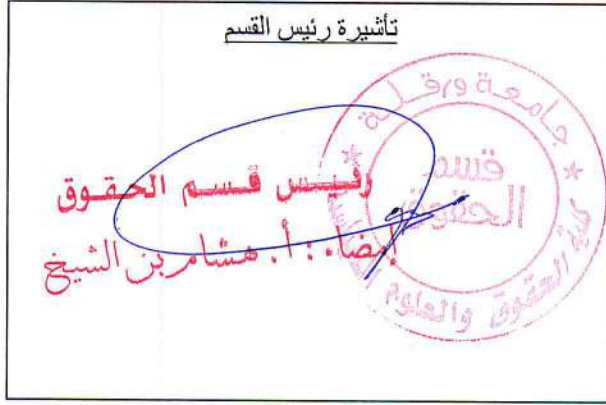 تأشيرة رئيس القسم
رئيس قسم الحقوق
إمضاء: أ. هشام بن الشيخ
جامعة ورقلة
قسم
الحقوق
كلية الحقوق والعلوم